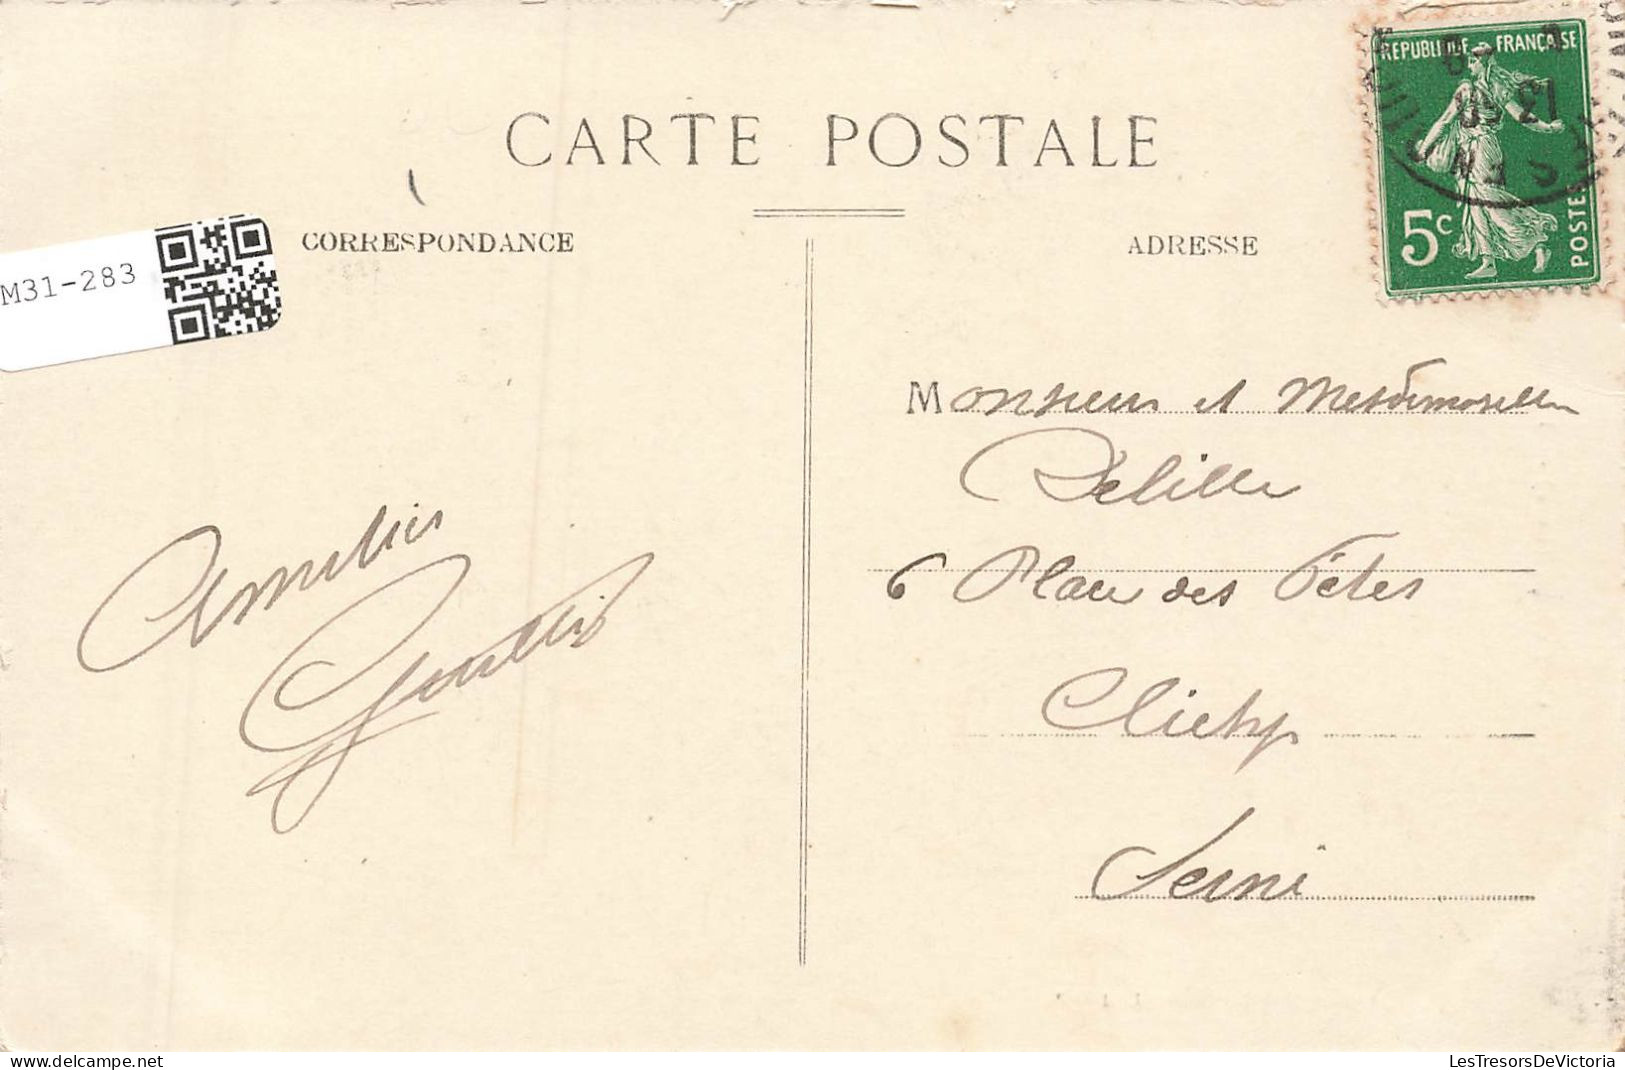 CARTE POSTALE
CORRESPONDANCE
ADRESSE
REPUBLIQUE FRANÇAISE
5c
POSTES
M31-283
Monsieur et Mesdemoiselles
Delille
6 Place des Fêtes
Clichy
Seine
Amitiés
LesTresorsDeVictoria